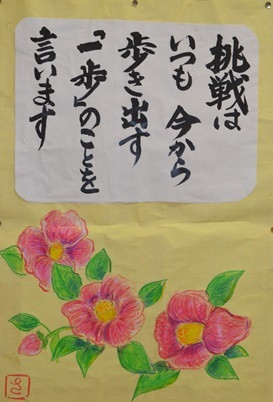 挑戦は
いつも 今から
歩き出す
「一歩」のことを
言います